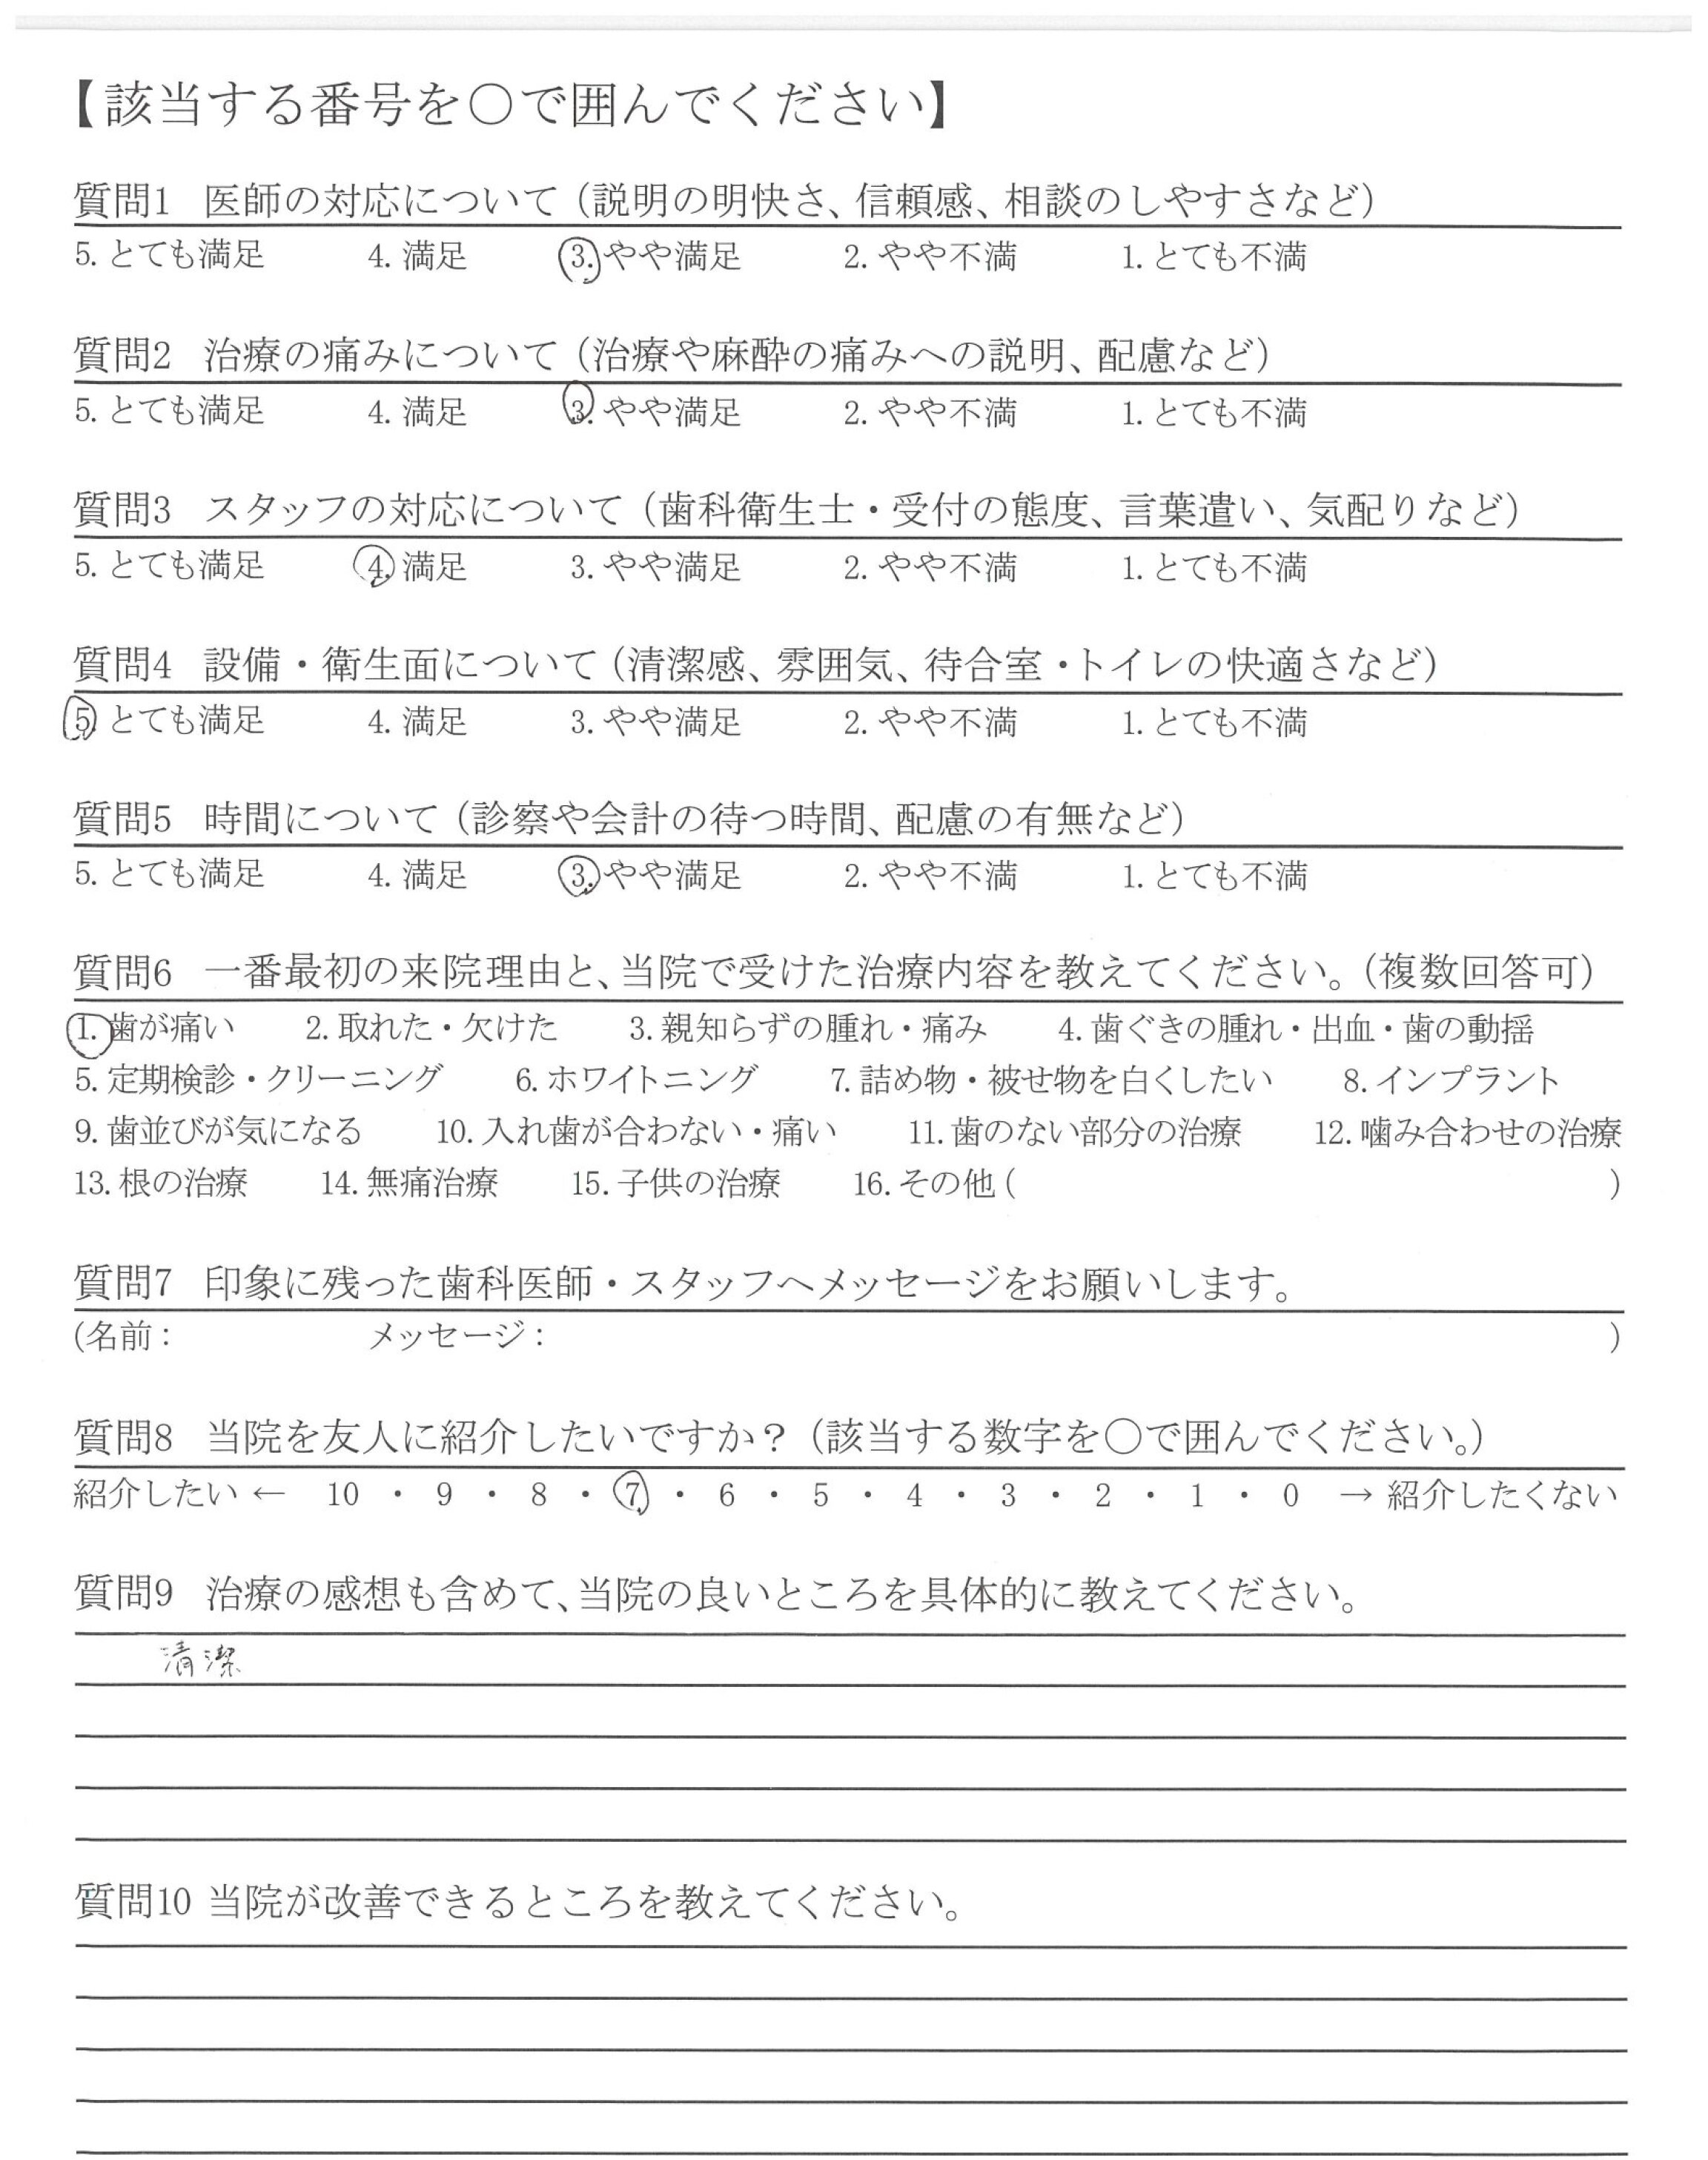 【該当する番号を○で囲んでください】
質問1 医師の対応について（説明の明快さ、信頼感、相談のしやすさなど）
5. とても満足 4. 満足 3. やや満足 2. やや不満 1. とても不満
質問2 治療の痛みについて（治療や麻酔の痛みへの説明、配慮など）
5. とても満足 4. 満足 3. やや満足 2. やや不満 1. とても不満
質問3 スタッフの対応について（歯科衛生士・受付の態度、言葉遣い、気配りなど）
5. とても満足 4. 満足 3. やや満足 2. やや不満 1. とても不満
質問4 設備・衛生面について（清潔感、雰囲気、待合室・トイレの快適さなど）
5. とても満足 4. 満足 3. やや満足 2. やや不満 1. とても不満
質問5 時間について（診察や会計の待つ時間、配慮の有無など）
5. とても満足 4. 満足 3. やや満足 2. やや不満 1. とても不満
質問6 一番最初の来院理由と、当院で受けた治療内容を教えてください。（複数回答可）
1. 歯が痛い 2. 取れた・欠けた 3. 親知らずの腫れ・痛み 4. 歯ぐきの腫れ・出血・歯の動揺
5. 定期検診・クリーニング 6. ホワイトニング 7. 詰め物・被せ物を白くしたい 8. インプラント
9. 歯並びが気になる 10. 入れ歯が合わない・痛い 11. 歯のない部分の治療 12. 噛み合わせの治療
13. 根の治療 14. 無痛治療 15. 子供の治療 16. その他 ( )
質問7 印象に残った歯科医師・スタッフへメッセージをお願いします。
(名前： メッセージ： )
質問8 当院を友人に紹介したいですか？（該当する数字を○で囲んでください。）
紹介したい ← 10 ・ 9 ・ 8 ・ 7 ・ 6 ・ 5 ・ 4 ・ 3 ・ 2 ・ 1 ・ 0 → 紹介したくない
質問9 治療の感想も含めて、当院の良いところを具体的に教えてください。
清潔
質問10 当院が改善できるところを教えてください。